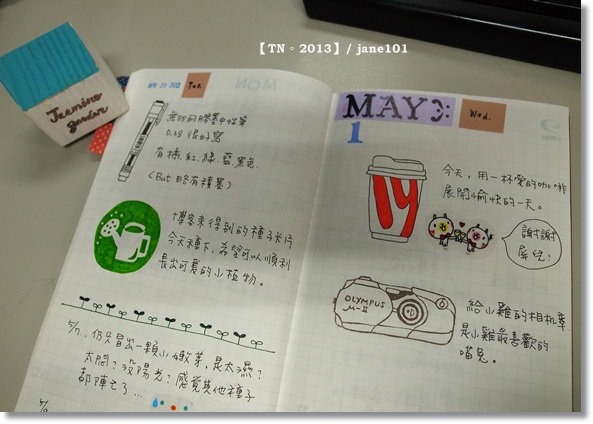 【TN。2013】/ jane101
Jasmine
garden
APR 30 2013
Tue.
MON
無印的膠墨中性筆
0.38 很好寫
有橘.紅.綠.藍.黑色.
(But 容有積墨)
博客來得到的種子卡片
今天種下,希望可以順利
長出可愛的小植物。
5/7.. 仍只冒出一顆小嫩芽,是太濕?
太悶?沒陽光?感覺其他種子
都陣亡了...
5/9
MAY
1
Wed.
今天,用一杯愛的咖啡
展開愉快的一天。
謝謝
屏兒!
OLYMPUS
μ-II
給小雞的相機章,
是小雞最喜歡的
喵兔。